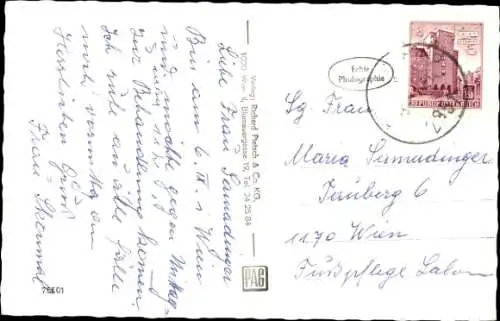 Liebe Frau Samudinger
Bin am 6. III. i Wien
und möchte gegen Mittag
zur Behandlung kommen
Ich rufe auf alle Fälle
noch vormittag an
Herzlichen Gruß
Frau
76601
Verlag Richard Pietsch & Co. KG.
1020 Wien II, Blumauergasse 19, Tel. 24 25 84
PAG
Echte
Photographie
REPUBLIK ÖSTERREICH
Sg. Frau
Maria Samudinger
Tauberg 6
1170 Wien
Fußpflege Salon